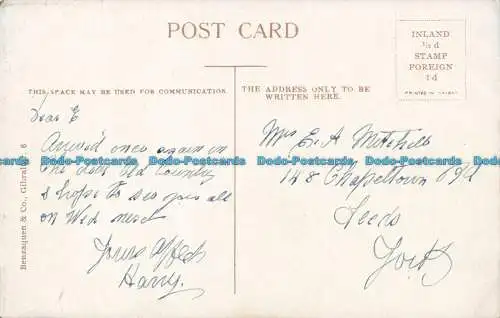 POST CARD
INLAND
½d
STAMP
FOREIGN
1d
PRINTED IN
THIS SPACE MAY BE USED FOR COMMUNICATION.
THE ADDRESS ONLY TO BE
WRITTEN HERE.
Benzaquen & Co., Gibral 6
Dear E
Arrived once again in
the Old Country
& hope to see you all
on Wed next
Yours Affec
Harry.
Mrs E. A Mitchell
148 Chapeltown Rd
Leeds
York
Dodo-Postcards Dodo-Postcards Dodo-Postcards Dodo-Postcards